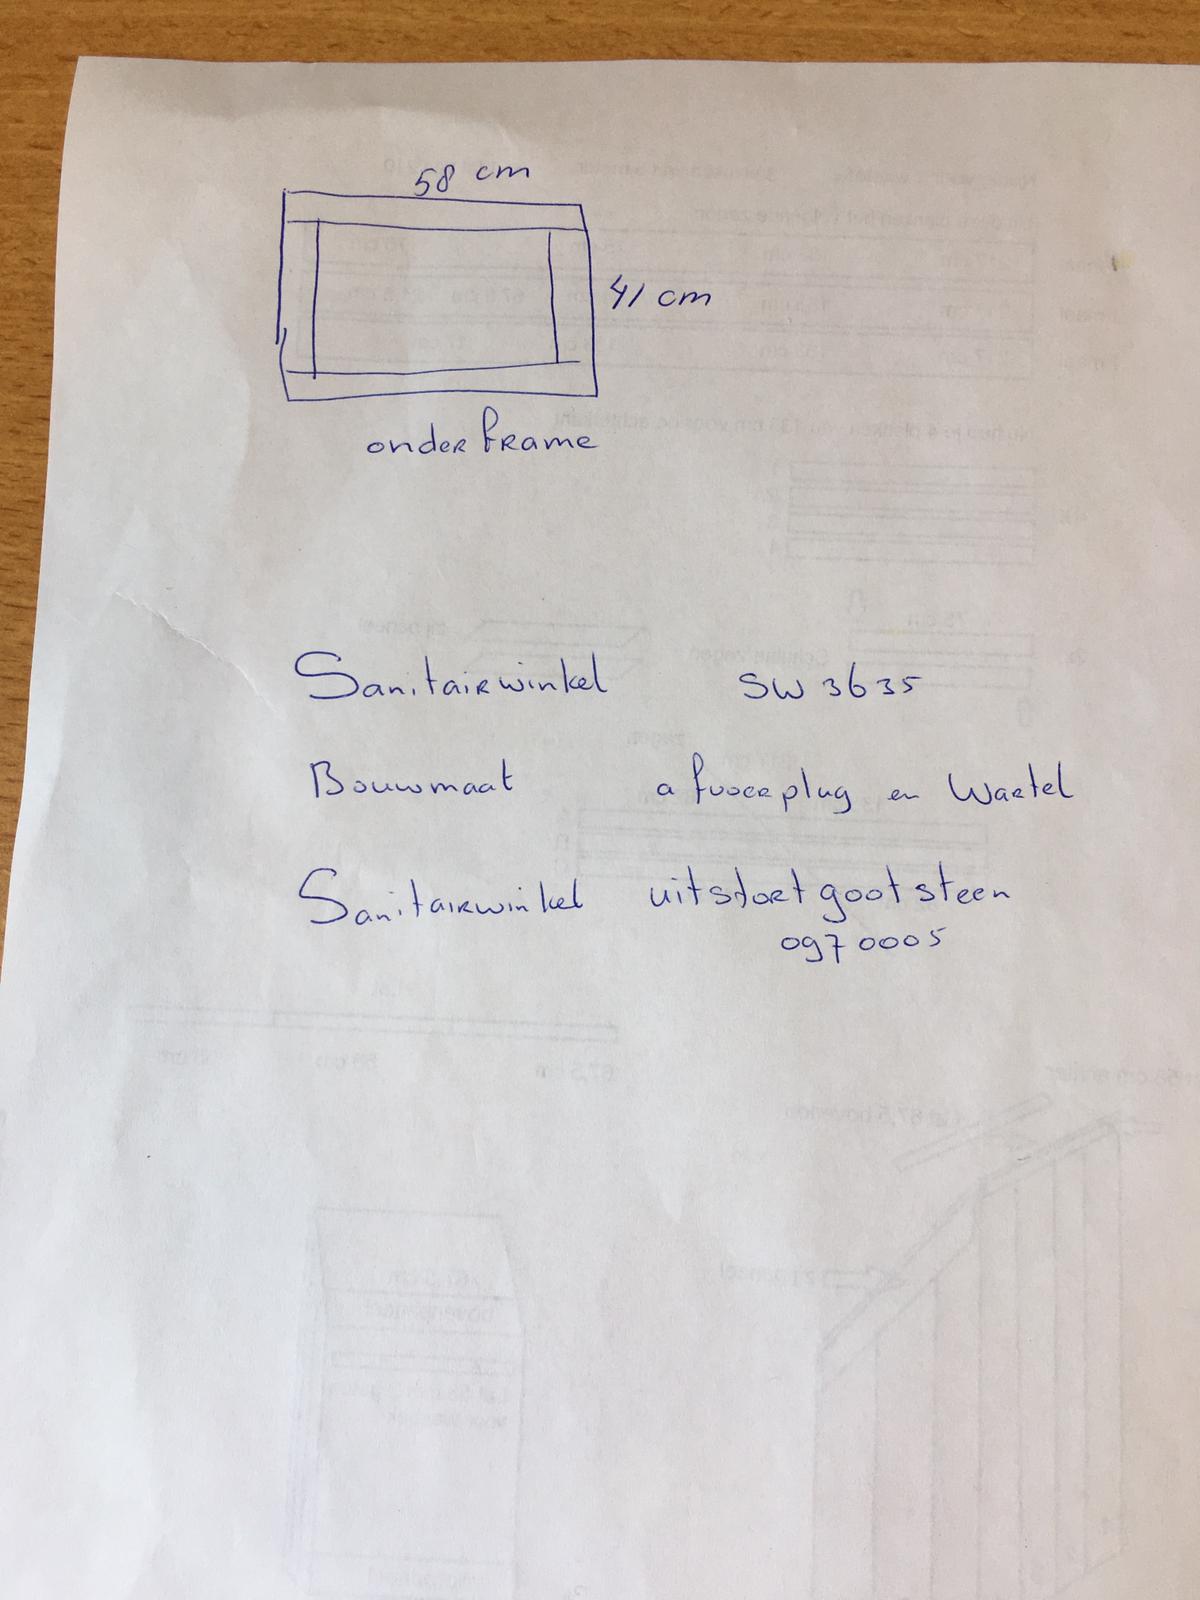 58 cm
41 cm
onder frame
Sanitairwinkel SW 3635
Bouwmaat afvoerplug en Wartel
Sanitairwinkel uitstortgootsteen
0970005